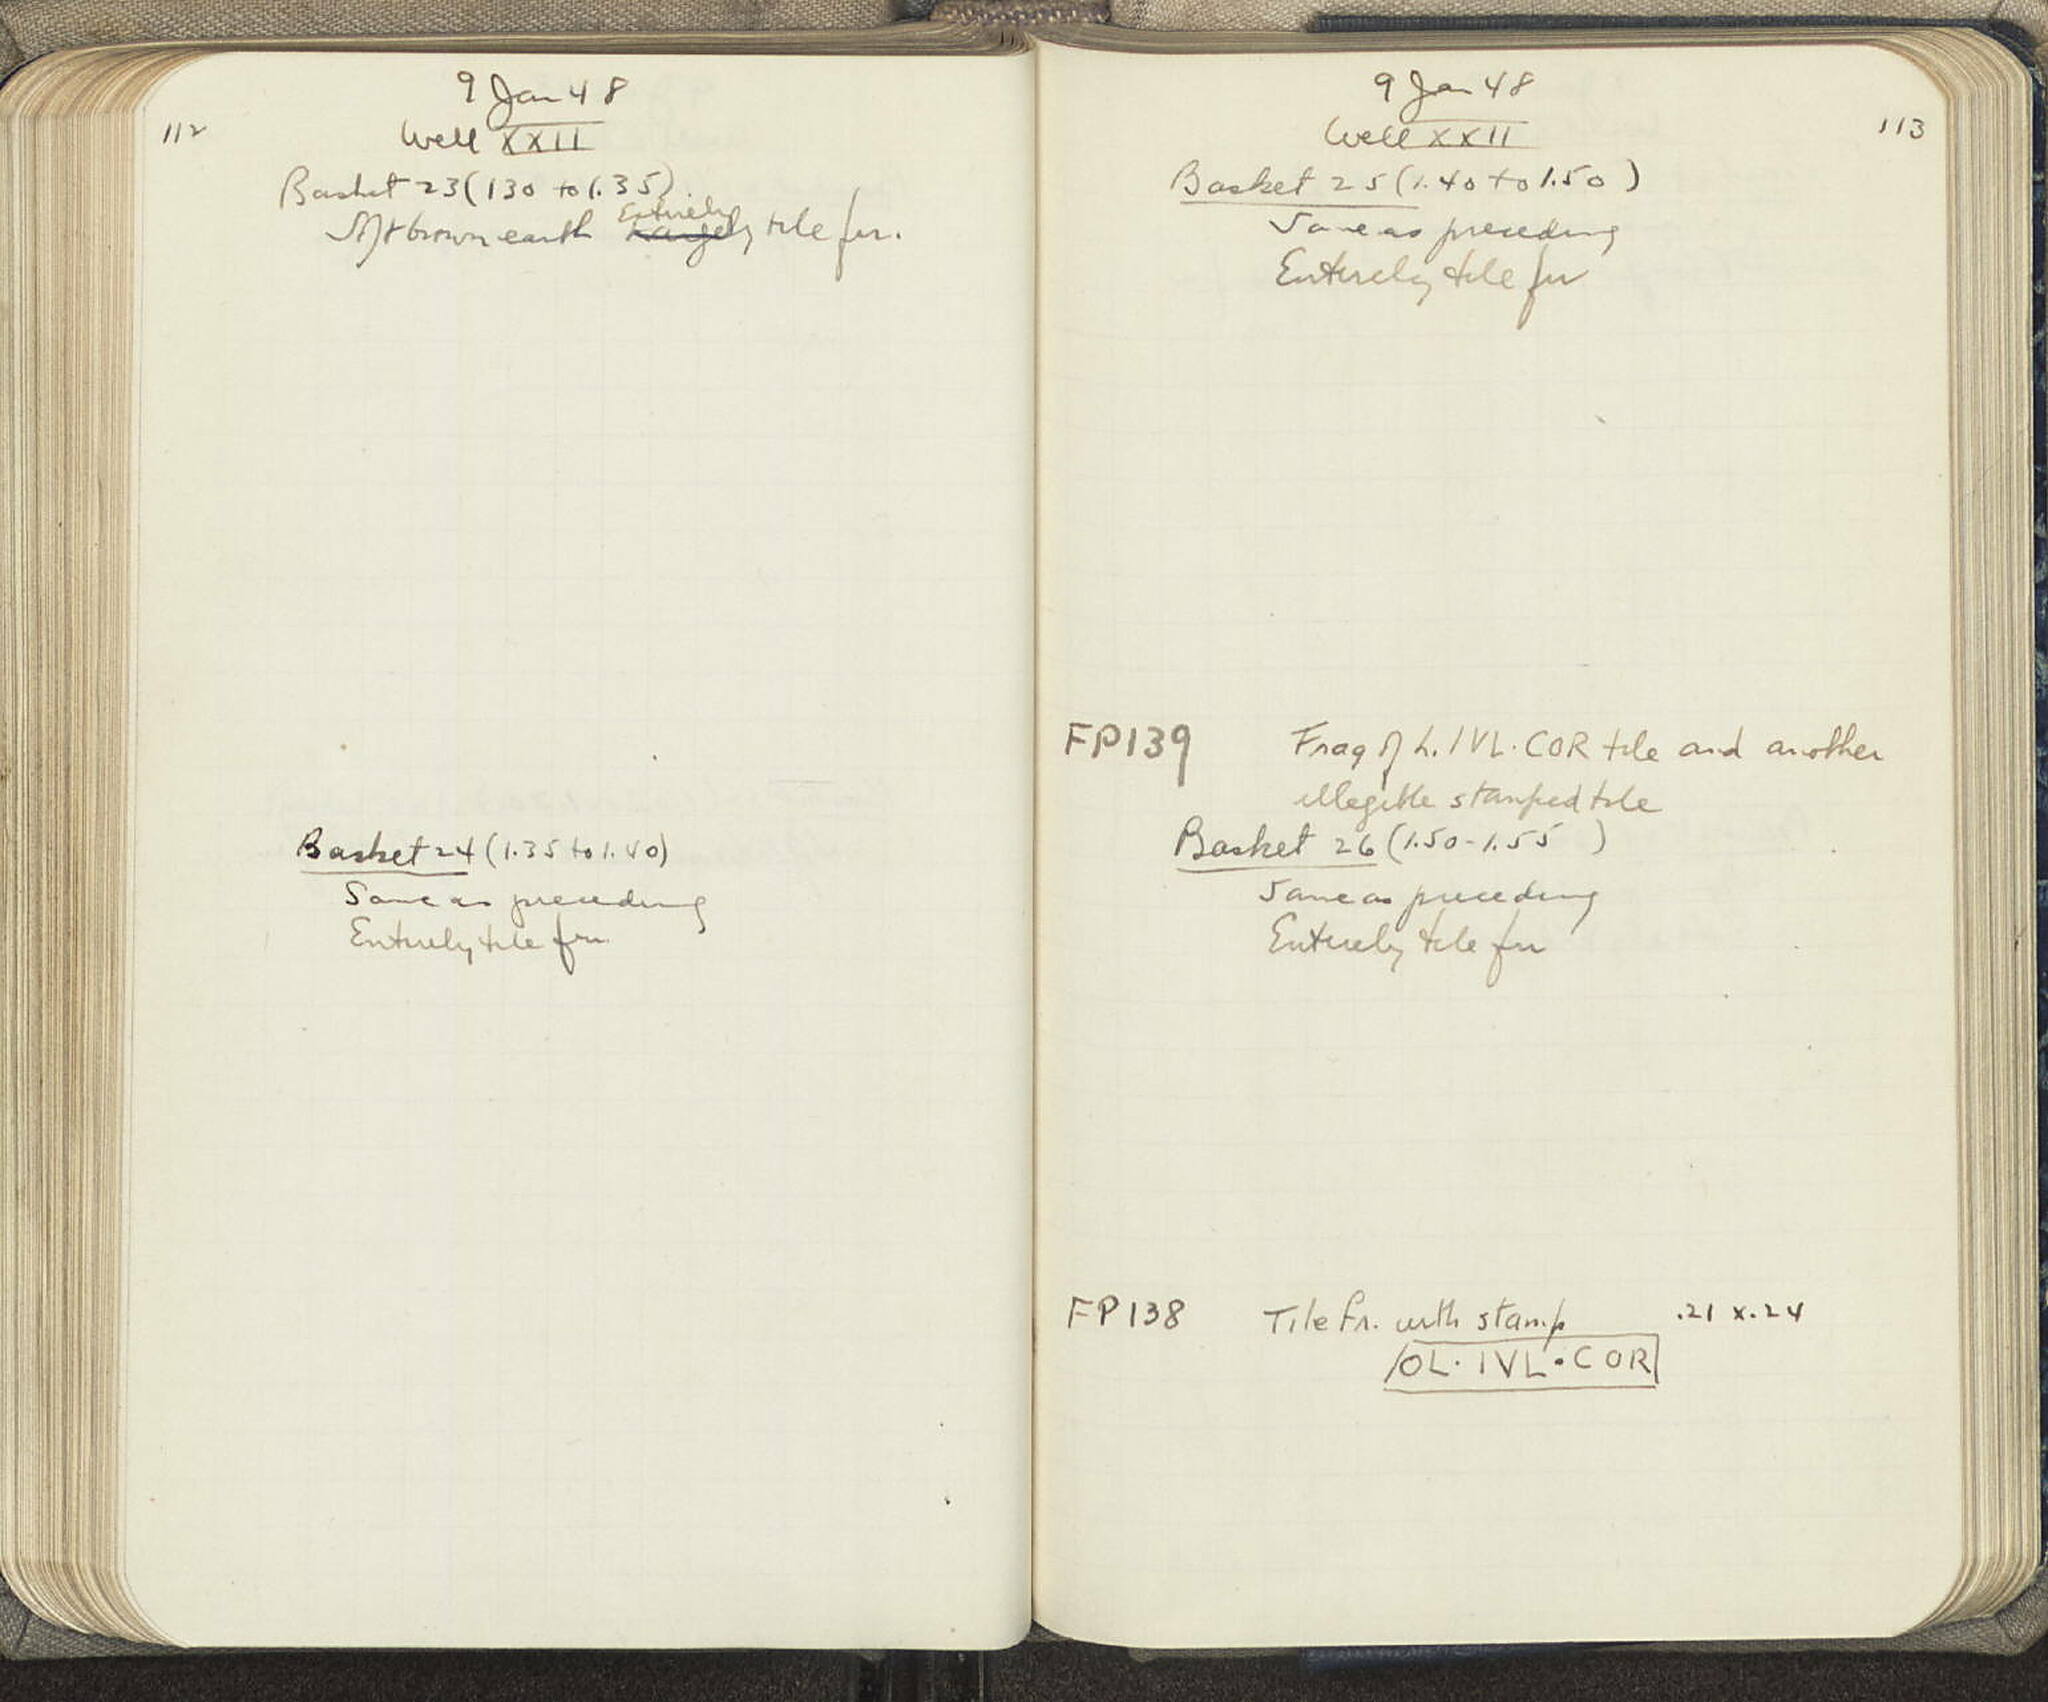 112
9 Jan 48
Well XXII
Basket 23 (130 to 1.35).
Soft brown earth Largely Entirely tile fr.
Basket 24 (1.35 to 1.40)
Same as preceding
Entirely tile fr.
113
9 Jan 48
Well XXII
Basket 25 (1.40 to 1.50)
Same as preceding
Entirely tile fr
FP139 Frag of L.IVL.COR tile and another
illegible stamped tile
Basket 26 (1.50-1.55)
Same as preceding
Entirely tile fr
FP138 Tile Fr. with stamp .21 x .24
/OL·IVL·COR